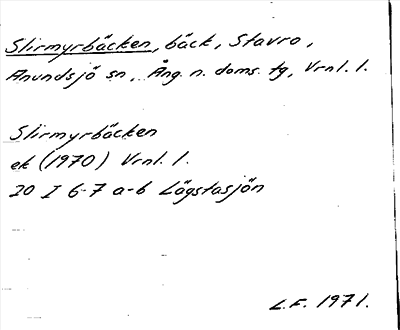 Slirmyrbäcken, bäck, Stavro,
Anundsjö sn, Ång. n. doms. tg, Vrnl. l.
Slirmyrbäcken
ek (1970) Vrnl. l.
20 I 6-7 a-b Lägstasjön
L.F. 1971.